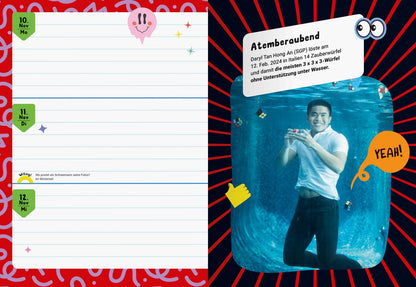 10.
Nov
Mo
11.
Nov
Di
Wow!
12.
Nov
Mi
Atemberaubend
Daryl Tan Hong An (SGP) löste am
12. Feb. 2024 in Italien 14 Zauberwürfel
und damit die meisten 3 x 3 x 3-Würfel
ohne Unterstützung unter Wasser.
YEAH!